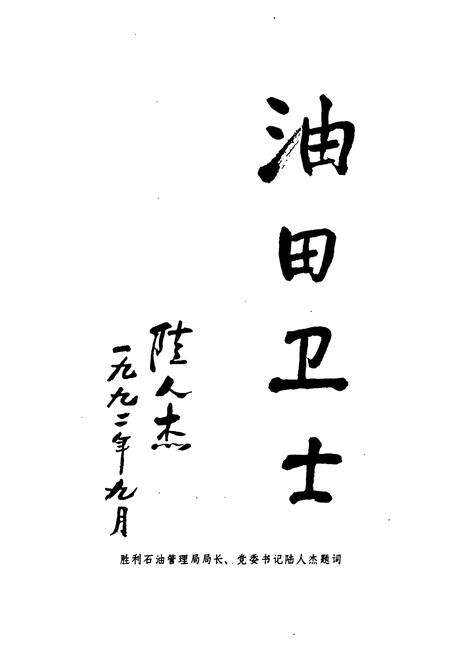 油田卫士
陆人杰
一九九二年九月
胜利石油管理局局长、党委书记陆人杰题词